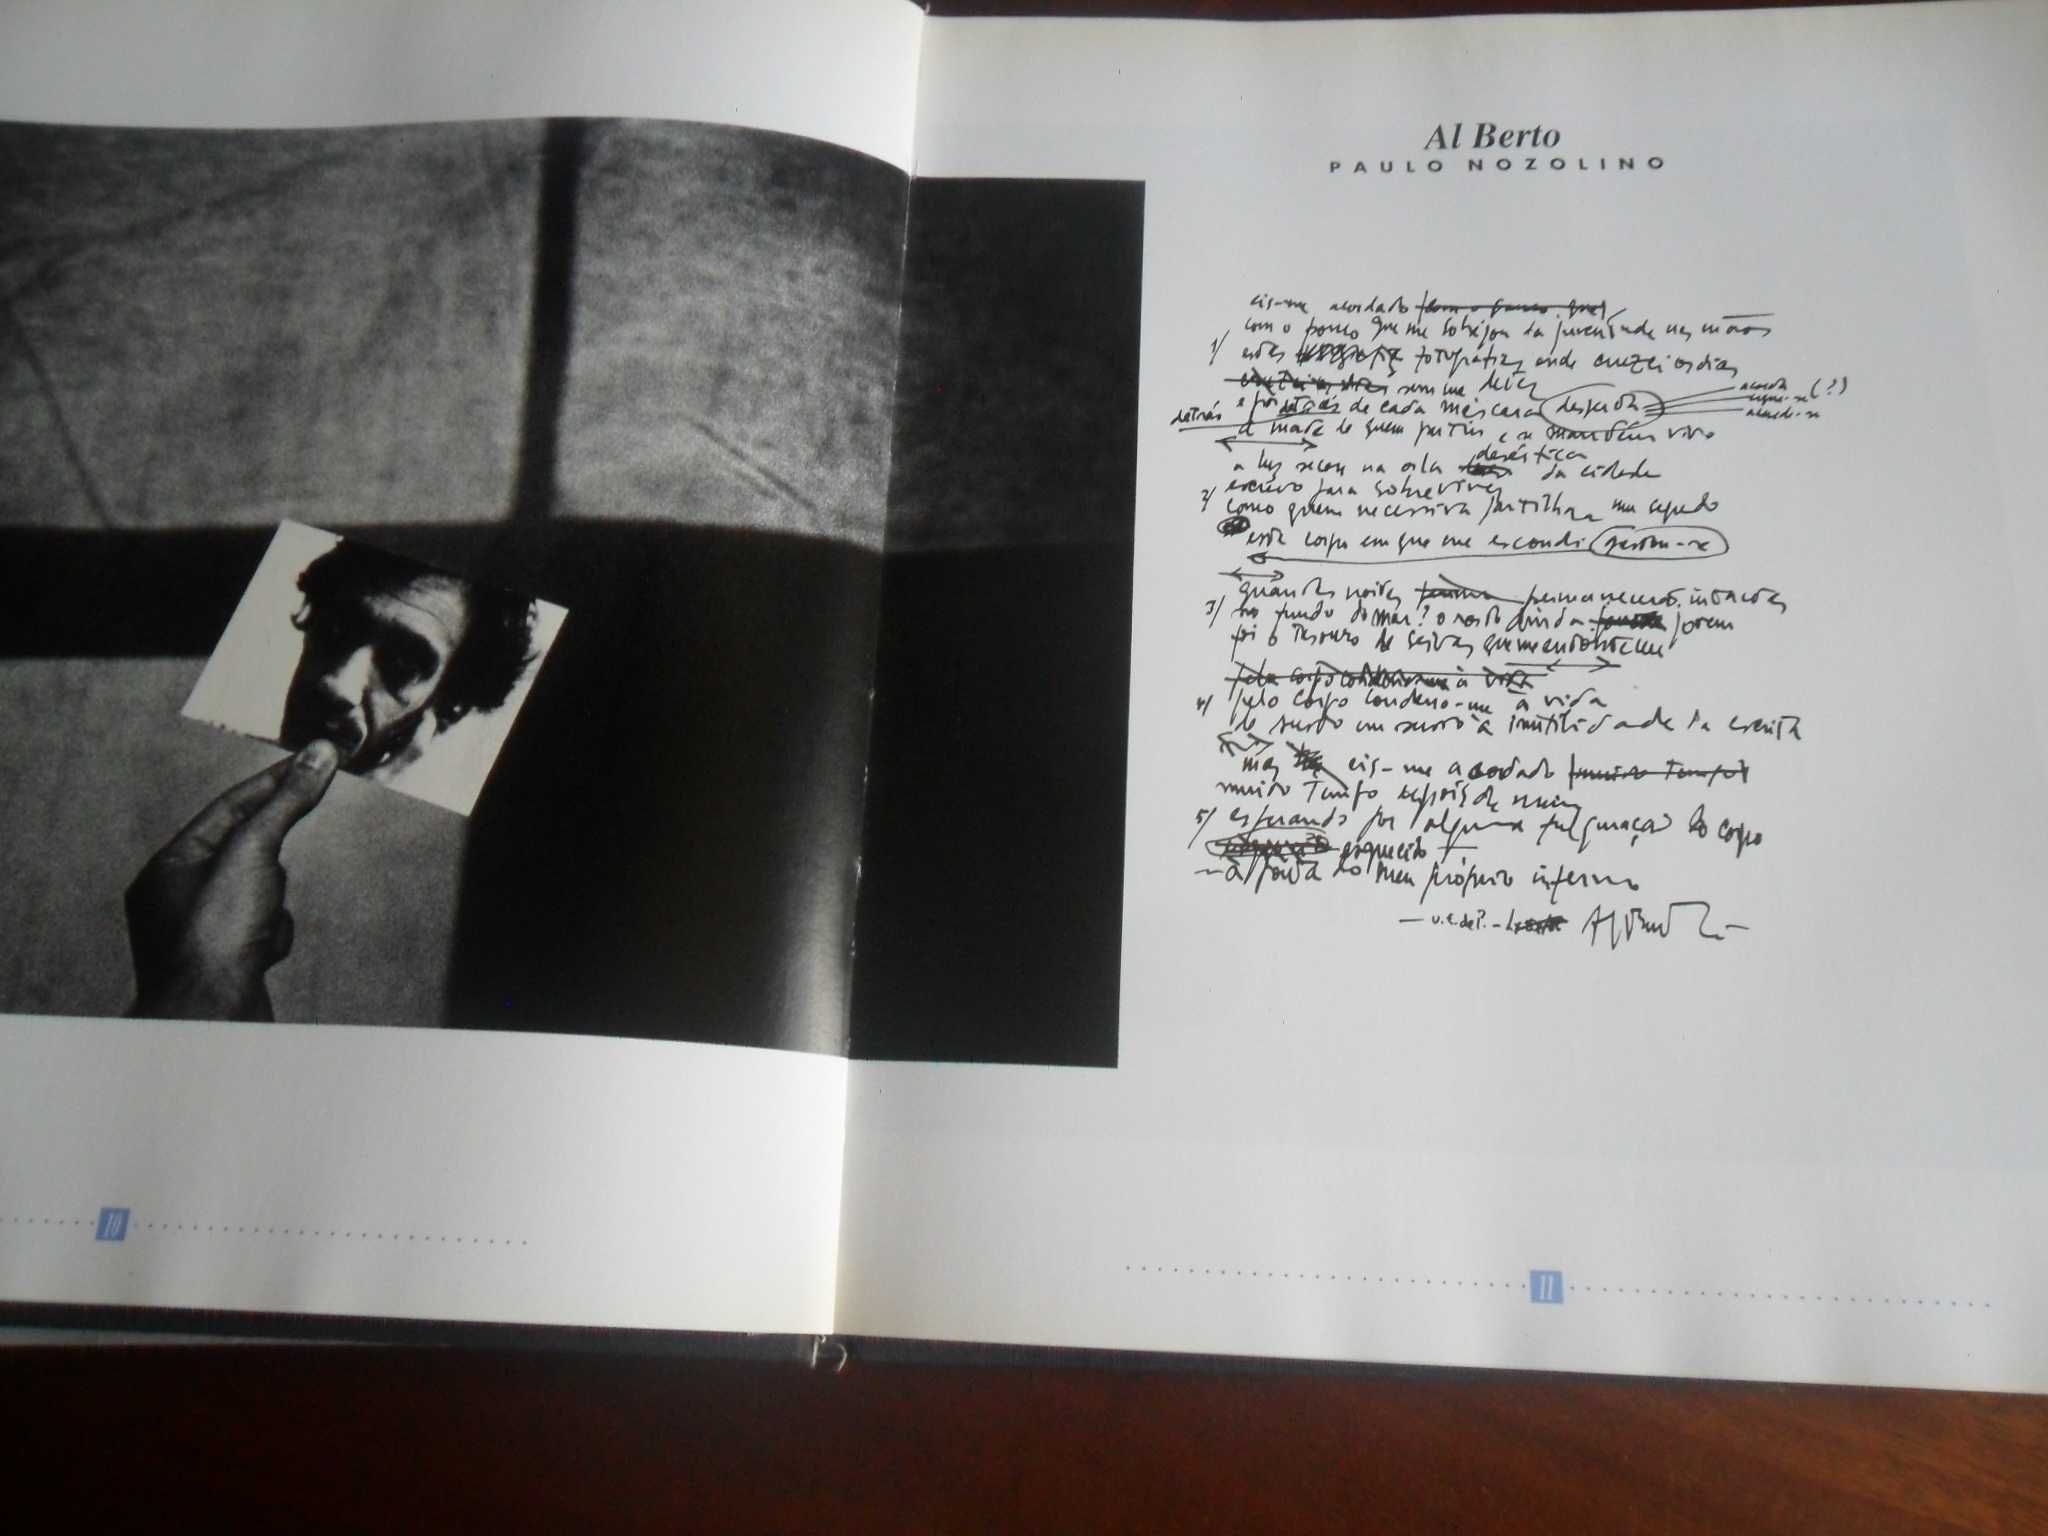 Al Berto
PAULO NOZOLINO
eis-me acordado
com o pouco que me sobejou da juventude nas mãos
1/ estas fotografias onde cruzei os dias
sem me deter
e por detrás de cada máscara desperta
detrás
(?)
a morte de quem partiu e se mantém vivo
a luz secou na orla desértica da cidade
escrevo para sobreviver
2/ como quem necessita partilhar um segredo
este corpo em que me escondi gastou-se
quantas noites permanecerão intactas
3/ no fundo do mar? o rosto ainda jovem
foi o tesouro de seivas que me entonteceu
pelo corpo condeno-me à vida
4/ pelo corpo condeno-me à vida
de susto em susto à inutilidade da escrita
mas eis-me acordado muito tempo
muito tempo depois de mim
5/ esperando por alguma fulguração do corpo
esquecido
— à porta do meu próprio inferno
Al Berto —
10
11